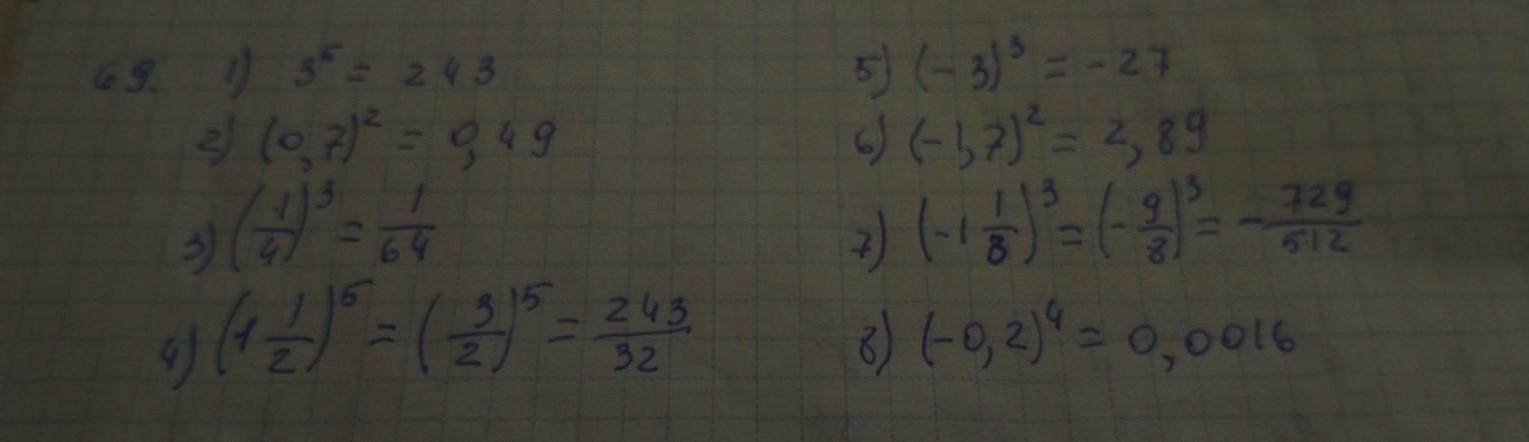 69. 1) 3⁵ = 243
2) (0,7)² = 0,49
3) (1/4)³ = 1/64
4) (1 1/2)⁵ = (3/2)⁵ = 243/32
5) (-3)³ = -27
6) (-1,7)² = 2,89
7) (-1 1/8)³ = (-9/8)³ = -729/512
8) (-0,2)⁴ = 0,0016